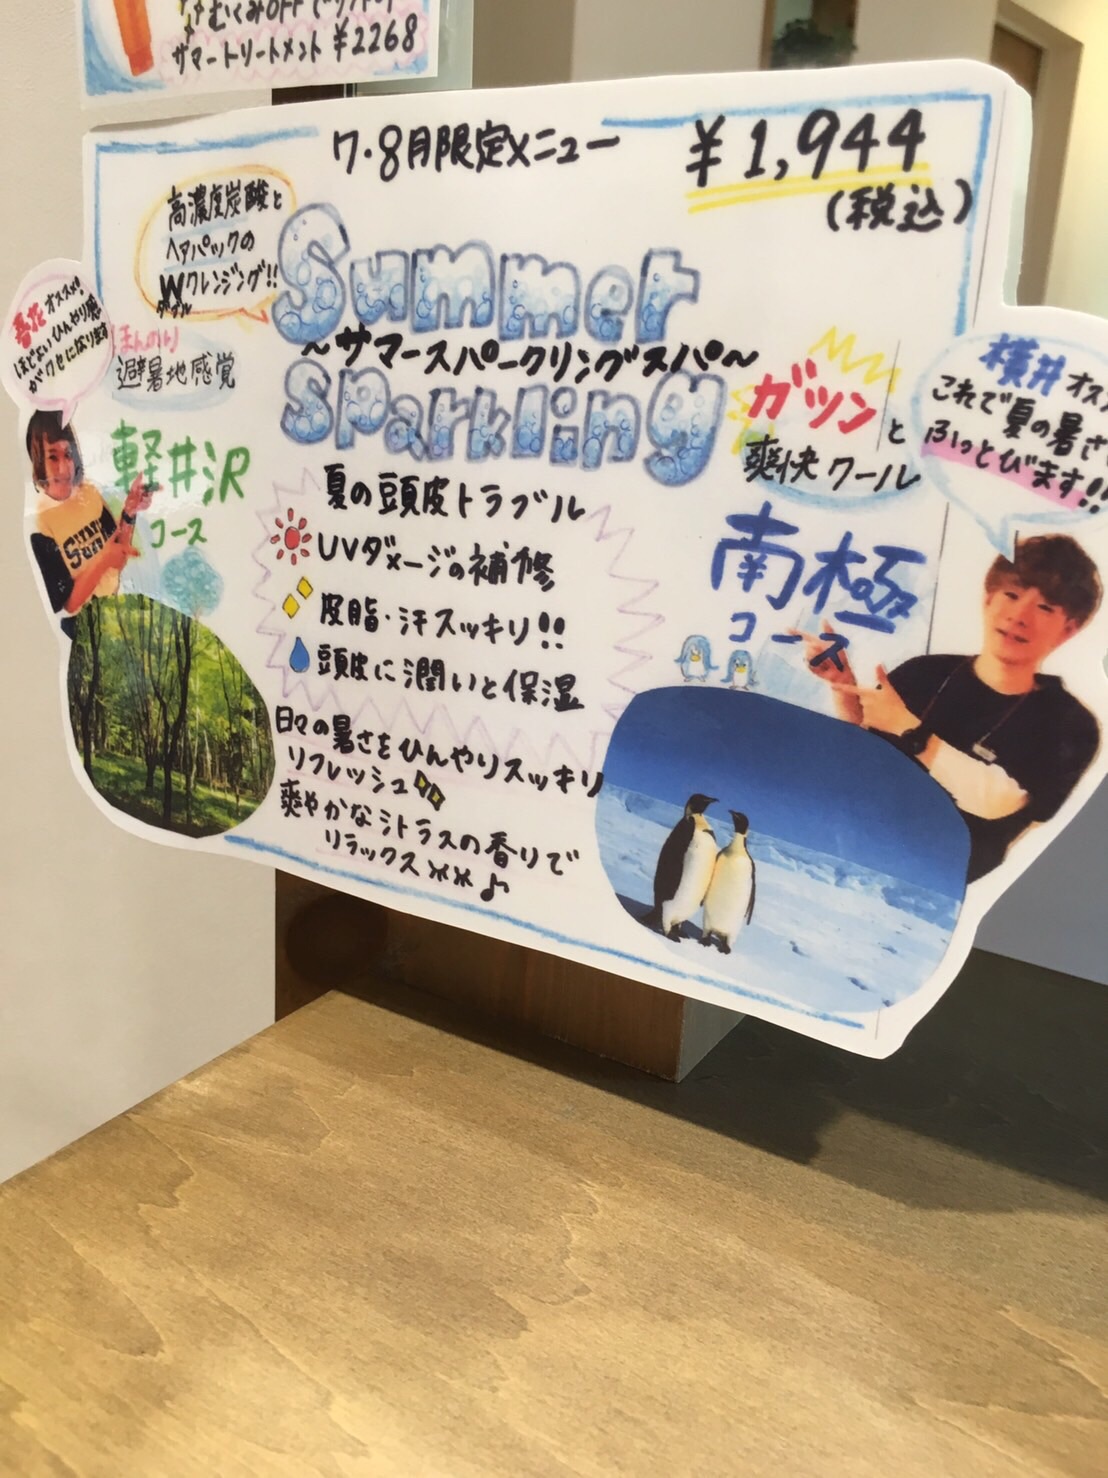 むくみOFFでリフトアップ
サマートリートメント ¥2268
7・8月限定メニュー
¥1,944
(税込)
高濃度炭酸と
ヘアパックの
Wクレンジング!!
ダブル
Summer
〜サマースパークリングスパ〜
Sparkling
オススメ!
ほどよいひんやり感
がクセになります
ほんのり
避暑地感覚
軽井沢
コース
ガツンと
爽快クール
南極
コース
横井オス
これで夏の暑さ
ふっとびます!!
夏の頭皮トラブル
UVダメージの補修
皮脂・汗スッキリ!!
頭皮に潤いと保湿
日々の暑さをひんやりスッキリ
リフレッシュ
爽やかなシトラスの香りで
リラックス